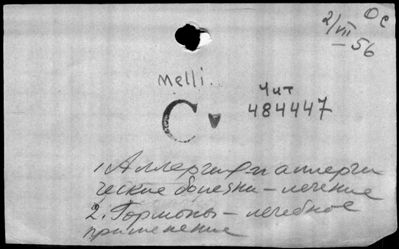 ОС
2/VII
-56
Melli.
Чит
C v
484447
1. Аллергия и аллерги
ческие болезни - лечение
2. Гормоны - лечебное
применение